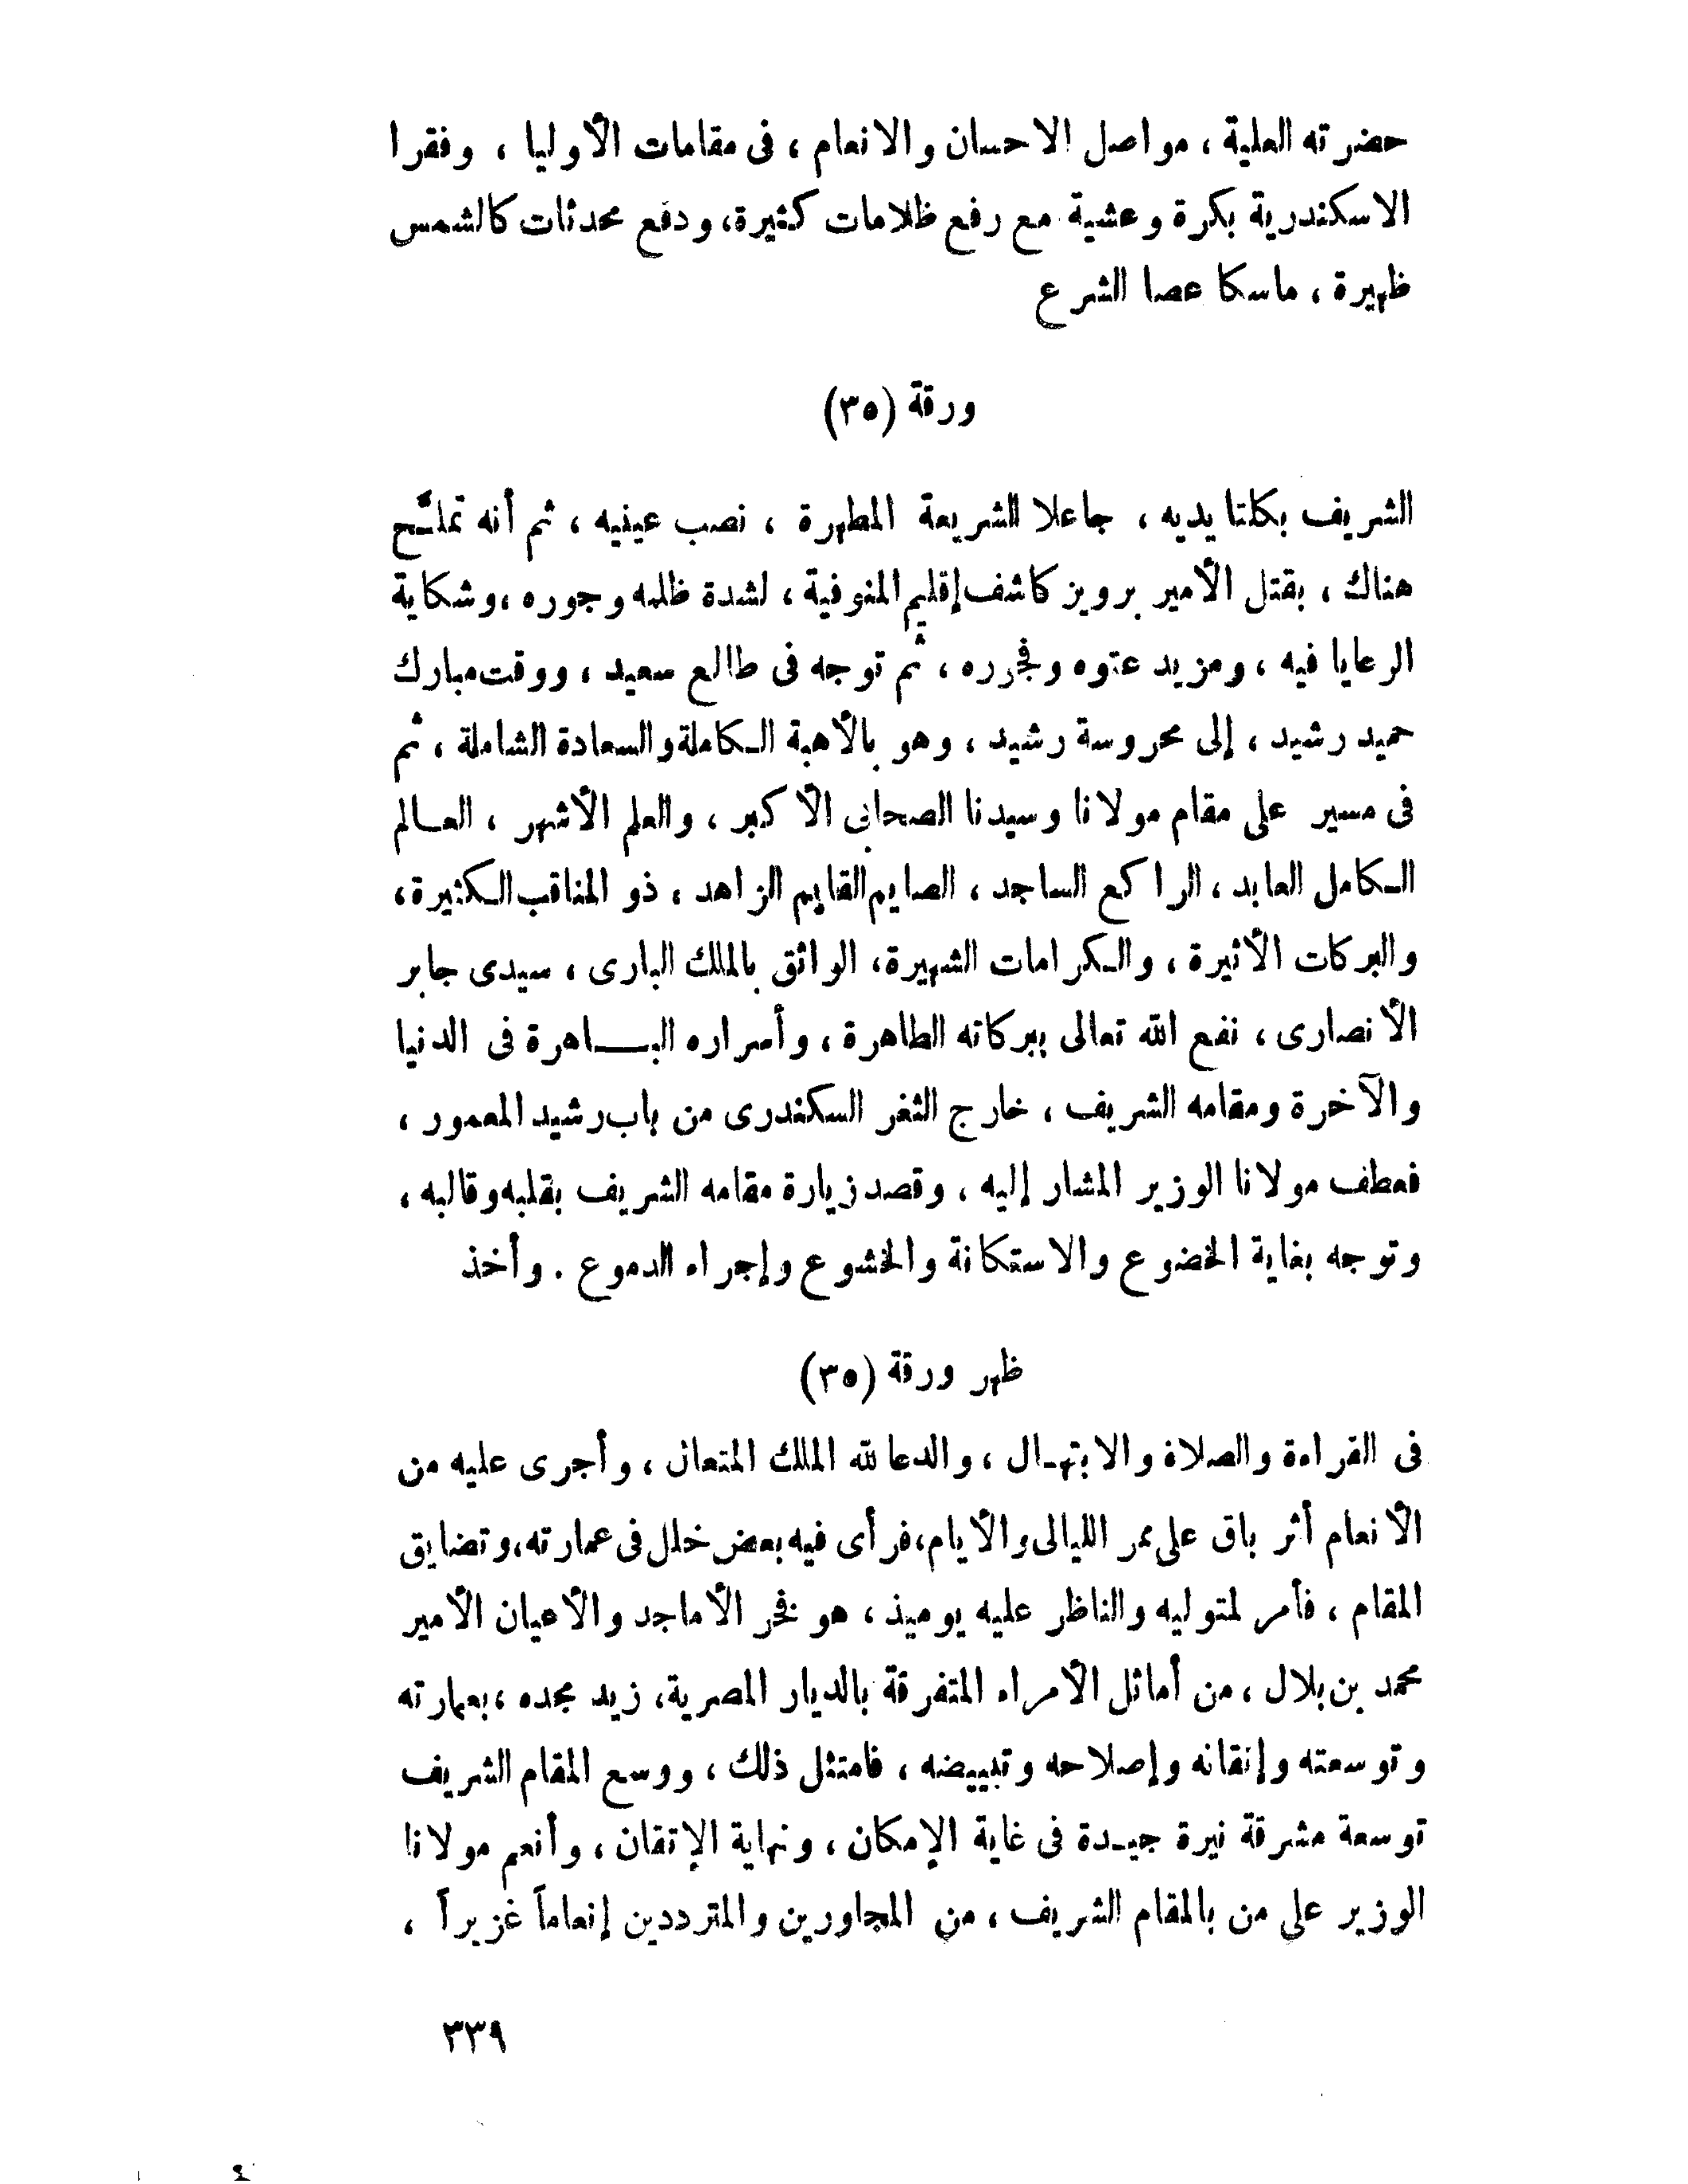 حضرته العلية ، مواصل الاحسان والانعام ، فى مقامات الأوليا ، وفقرا
الاسكندرية بكرة وعشية مع رفع ظلامات كثيرة، ودفع محدثات كالشمس
ظهيرة ، ماسكا عصا الشرع
ورقة (٣٥)
الشريف بكلتا يديه ، جاعلا للشريعة المطهرة ، نصب عينيه ، ثم أنه
هناك ، بقتل الأمير برويز كاشف إقليم المنوفية ، لشدة ظلمه وجوره ،وشكاية
الرعايا فيه ، ومزيد عتوه وفجرره ، ثم توجه فى طالع سعيد ، ووقت مبارك
حميد رشيد ، إلى محروسة رشيد ، وهو بالأهبة الكاملة والسعادة الشاملة ، ثم
فى مسير على مقام مولانا وسيدنا الصحابى الأكبر ، والعلم الأشهر ، العالم
الكامل العابد ، الراكع الساجد ، الصايم القايم الزاهد ، ذو المناقب الكثيرة،
والبركات الأثيرة ، والكرامات الشهيرة، الواثق بالملك البارى ، سيدى جابر
الأنصارى ، نفع الله تعالى ببركاته الطاهرة ، وأسراره البــاهرة فى الدنيا
والآخرة ومقامه الشريف ، خارج الثغر السكندرى من باب رشيد المعمور ،
فعطف مولانا الوزير المشار إليه ، وقصد زيارة مقامه الشريف بقلبه وقالبه ،
وتوجه بغاية الخضوع والاستكانة والخشوع وإجراء الدموع . وأخذ
ظهر ورقة (٣٥)
فى القراءة والصلاة والابتهـال ، والدعا لله الملك المتعال ، وأجرى عليه من
الأنعام أثر باق على ممر الليالى والأيام،فرأى فيه بعض خلل فى عمارته،وتضايق
المقام ، فأمر لمتوليه والناظر عليه يوميذ ، هو فخر الأماجد والأعيان الأمير
محمد بن بلال ، من أماثل الأمراء المتفرقة بالديار المصرية، زيد مجده ،بعمارته
وتوسعته وإتقانه وإصلاحه وتبييضه ، فامتثل ذلك ، ووسع المقام الشريف
توسعة مشرقة نيرة جيـدة فى غاية الإمكان ، ونهاية الإتقان ، وأنعم مولانا
الوزير على من بالمقام الشريف ، من المجاورين والمترددين إنعاماً غزيراً ،
٣٣٩